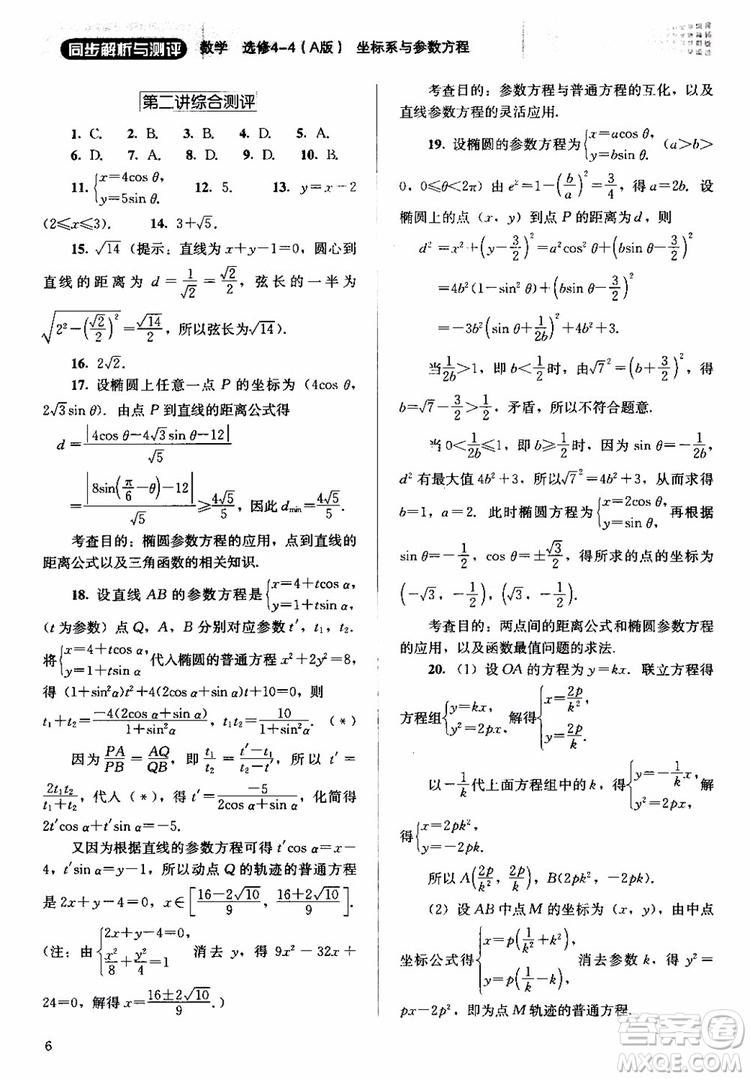 同步解析与测评 数学 选修4-4（A版） 坐标系与参数方程
第二讲综合测评
1. C. 2. B. 3. D. 4. D. 5. A.
6. D. 7. A. 8. D. 9. D. 10. B.
11. {x=4cos θ, y=5sin θ. 12. 5. 13. y=x-2
(2≤x≤3). 14. 3+√5.
15. √14 (提示：直线为 x+y-1=0，圆心到
直线的距离为 d=1/√2=√2/2，弦长的一半为
√(2²-(√2/2)²)=√14/2，所以弦长为√14).
16. 2√2.
17. 设椭圆上任意一点 P 的坐标为 (4cos θ,
2√3sin θ). 由点 P 到直线的距离公式得
d=|4cos θ-4√3sin θ-12|/√5
=|8sin(π/6-θ)-12|/√5≥4√5/5，因此 dmin=4√5/5.
考查目的：椭圆参数方程的应用，点到直线的
距离公式以及三角函数的相关知识.
18. 设直线 AB 的参数方程是{x=4+tcos α, y=1+tsin α
(t 为参数) 点 Q，A，B 分别对应参数 t′，t₁，t₂.
将{x=4+tcos α, y=1+tsin α 代入椭圆的普通方程 x²+2y²=8，
得 (1+sin²α)t²+4(2cos α+sin α)t+10=0，则
t₁+t₂=-4(2cos α+sin α)/(1+sin²α)，t₁t₂=10/(1+sin²α). (*)
因为 PA/PB=AQ/QB，即 t₁/t₂=(t′-t₁)/(t₂-t′)，所以 t′=
2t₁t₂/(t₁+t₂)，代入 (*)，得 t′=-5/(2cos α+sin α)，化简得
2t′cos α+t′sin α=-5.
又因为根据直线的参数方程可得 t′cos α=x-
4，t′sin α=y-1，所以动点 Q 的轨迹的普通方程
是 2x+y-4=0，x∈[(16-2√10)/9, (16+2√10)/9].
(注：由{2x+y-4=0, x²/8+y²/4=1 消去 y，得 9x²-32x+
24=0，解得 x=(16±2√10)/9.)
考查目的：参数方程与普通方程的互化，以及
直线参数方程的灵活应用.
19. 设椭圆的参数方程为{x=acos θ, y=bsin θ. (a>b>
0，0≤θ<2π) 由 e²=1-(b/a)²=3/4，得 a=2b. 设
椭圆上的点 (x，y) 到点 P 的距离为 d，则
d²=x²+(y-3/2)²=4b²cos²θ+(bsin θ-3/2)²
=4b²(1-sin²θ)+(bsin θ-3/2)²
=-3b²(sin θ+1/2b)²+4b²+3
当1/2b>1，即 b<1/2时，由√7²=(b+3/2)²，得
b=√7-3/2>1/2，矛盾，所以不符合题意.
当 0<1/2b≤1，即 b≥1/2时，因为 sin θ=-1/2b，
d²有最大值 4b²+3，所以√7²=4b²+3，解得
b=1，a=2. 此时椭圆方程为{x=2cos θ, y=sin θ. 再根据
sin θ=-1/2b=-1/2得 cos θ=±√3/2，所求的点的坐标为
(-√3，-1/2)，(√3，-1/2).
考查目的：两点间的距离公式和椭圆参数方程
的应用，以及函数最值问题的求法.
20. (1) 设 OA 的方程为 y=kx. 联立方程得
方程组{y=kx, y²=2px, 解得{x=2p/k², y=2p/k.
以-1/k代上面方程组中的 k，得{y=-1/k x, y²=2px, 解
得{x=2pk², y=-2pk.
所以 A(2p/k², 2p/k)，B(2pk²，-2pk).
(2) 设 AB 中点 M 的坐标为 (x，y)，由中点
坐标公式得{x=p(1/k²+k²), y=p(1/k-k), 消去 k，得 y²=
px-2p²，即为点 M 轨迹的普通方程.
6
答案圈
MXQE.COM